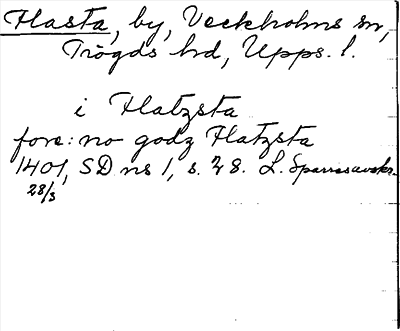 Hasta, by, Veckholms sn,
Trögds hd, Upps. l.
i Hatzsta
fore: no godz Hatzsta
1401, SD ns 1, s. 28. L. Sparres avskr.
28/3